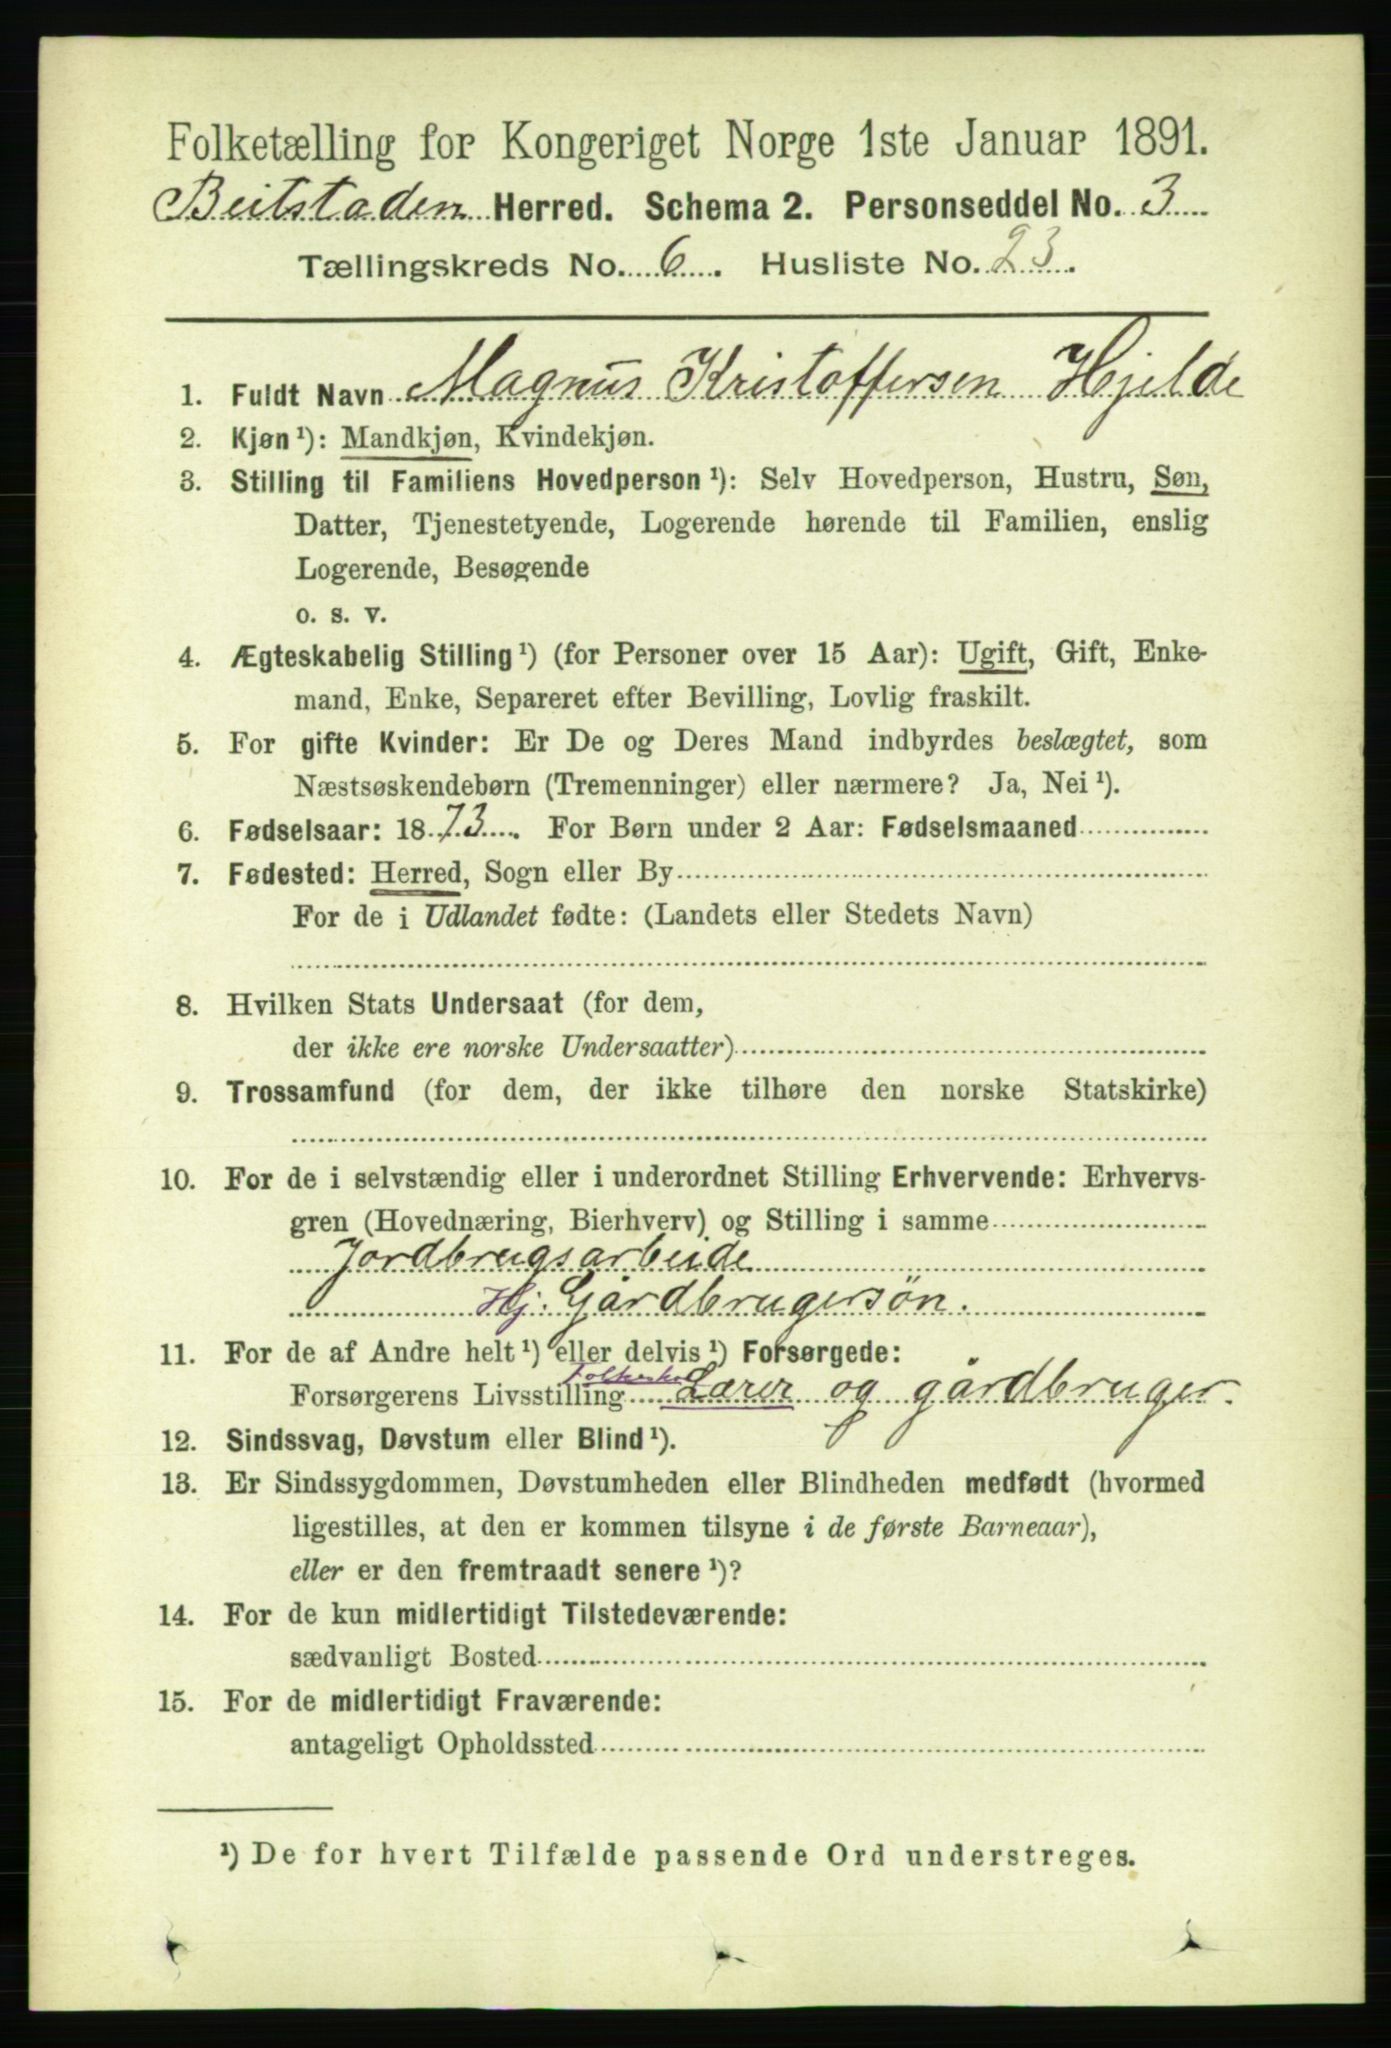 Folketælling for Kongeriget Norge 1ste Januar 1891.
Beitstaden Herred. Schema 2. Personseddel No. 3
Tællingskreds No. 6. Husliste No. 23.
1. Fuldt Navn Magnus Kristoffersen Hjelde
2. Kjøn ¹): Mandkjøn, Kvindekjøn.
3. Stilling til Familiens Hovedperson ¹): Selv Hovedperson, Hustru, Søn,
Datter, Tjenestetyende, Logerende hørende til Familien, enslig
Logerende, Besøgende
o. s. v.
4. Ægteskabelig Stilling ¹) (for Personer over 15 Aar): Ugift, Gift, Enke-
mand, Enke, Separeret efter Bevilling, Lovlig fraskilt.
5. For gifte Kvinder: Er De og Deres Mand indbyrdes beslægtet, som
Næstsøskendebørn (Tremenninger) eller nærmere? Ja, Nei ¹).
6. Fødselsaar: 1873. For Børn under 2 Aar: Fødselsmaaned
7. Fødested: Herred, Sogn eller By
For de i Udlandet fødte: (Landets eller Stedets Navn)
8. Hvilken Stats Undersaat (for dem,
der ikke ere norske Undersaatter)
9. Trossamfund (for dem, der ikke tilhøre den norske Statskirke)
10. For de i selvstændig eller i underordnet Stilling Erhvervende: Erhvervs-
gren (Hovednæring, Bierhverv) og Stilling i samme
Jordbrugsarbeide
Hj. Gårdbrugersön.
11. For de af Andre helt ¹) eller delvis ¹) Forsørgede:
Folkeskol
Forsørgerens Livsstilling Lærer og gårdbruger.
12. Sindssvag, Døvstum eller Blind ¹).
13. Er Sindssygdommen, Døvstumheden eller Blindheden medfødt (hvormed
ligestilles, at den er kommen tilsyne i de første Barneaar),
eller er den fremtraadt senere ¹)?
14. For de kun midlertidigt Tilstedeværende:
sædvanligt Bosted
15. For de midlertidigt Fraværende:
antageligt Opholdssted
¹) De for hvert Tilfælde passende Ord understreges.